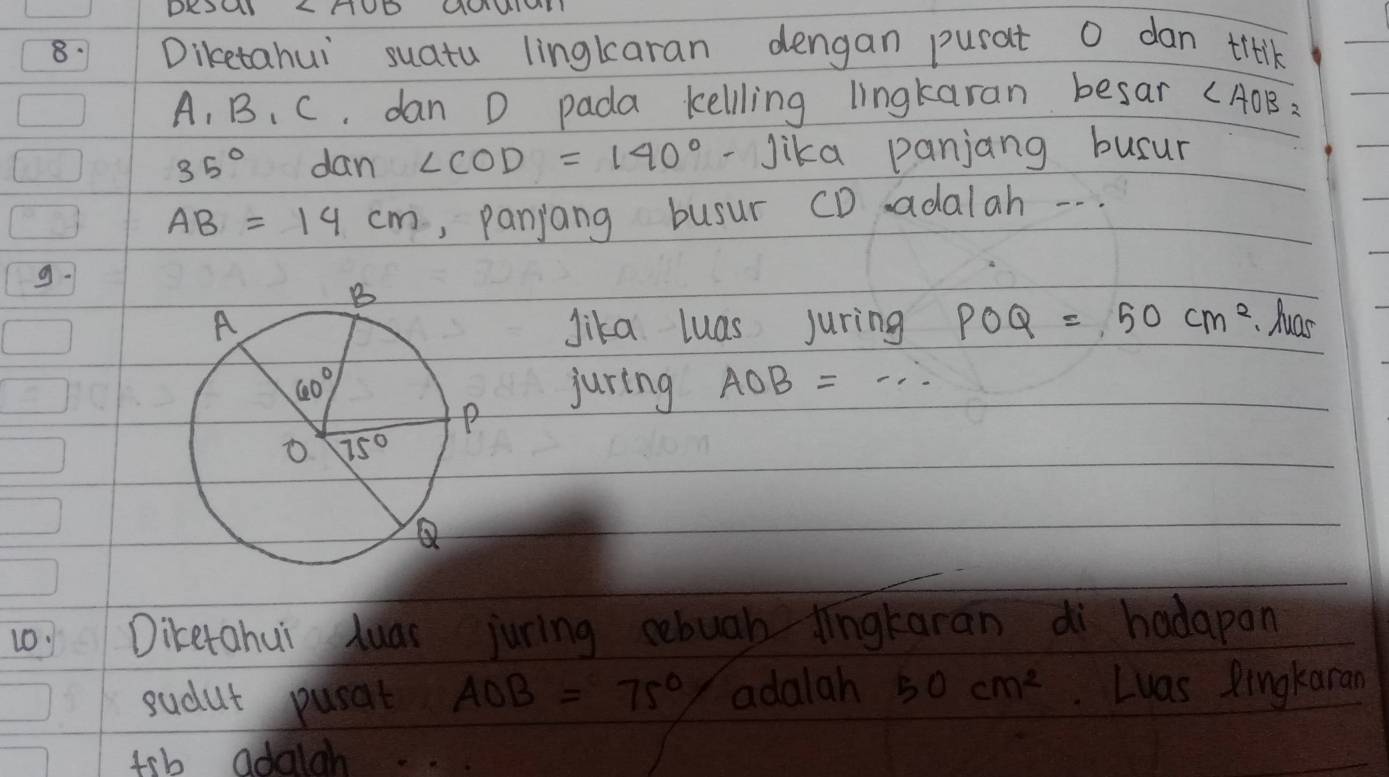 besar ∠AOB adalah
8. Diketahui suatu lingkaran dengan pusat O dan titik
A, B, C, dan D pada keliling lingkaran besar ∠AOB =
35° dan ∠COD = 140°. Jika panjang busur
AB = 14 cm, panjang busur CD adalah ...
9.
B
A
Jika luas juring POQ = 50 cm². luas
60°
juring AOB = ....
P
O 75°
Q
10. Diketahui luas juring sebuah lingkaran di hadapan
sudut pusat AOB = 75° adalah 50 cm². Luas lingkaran
tsb adalah ...